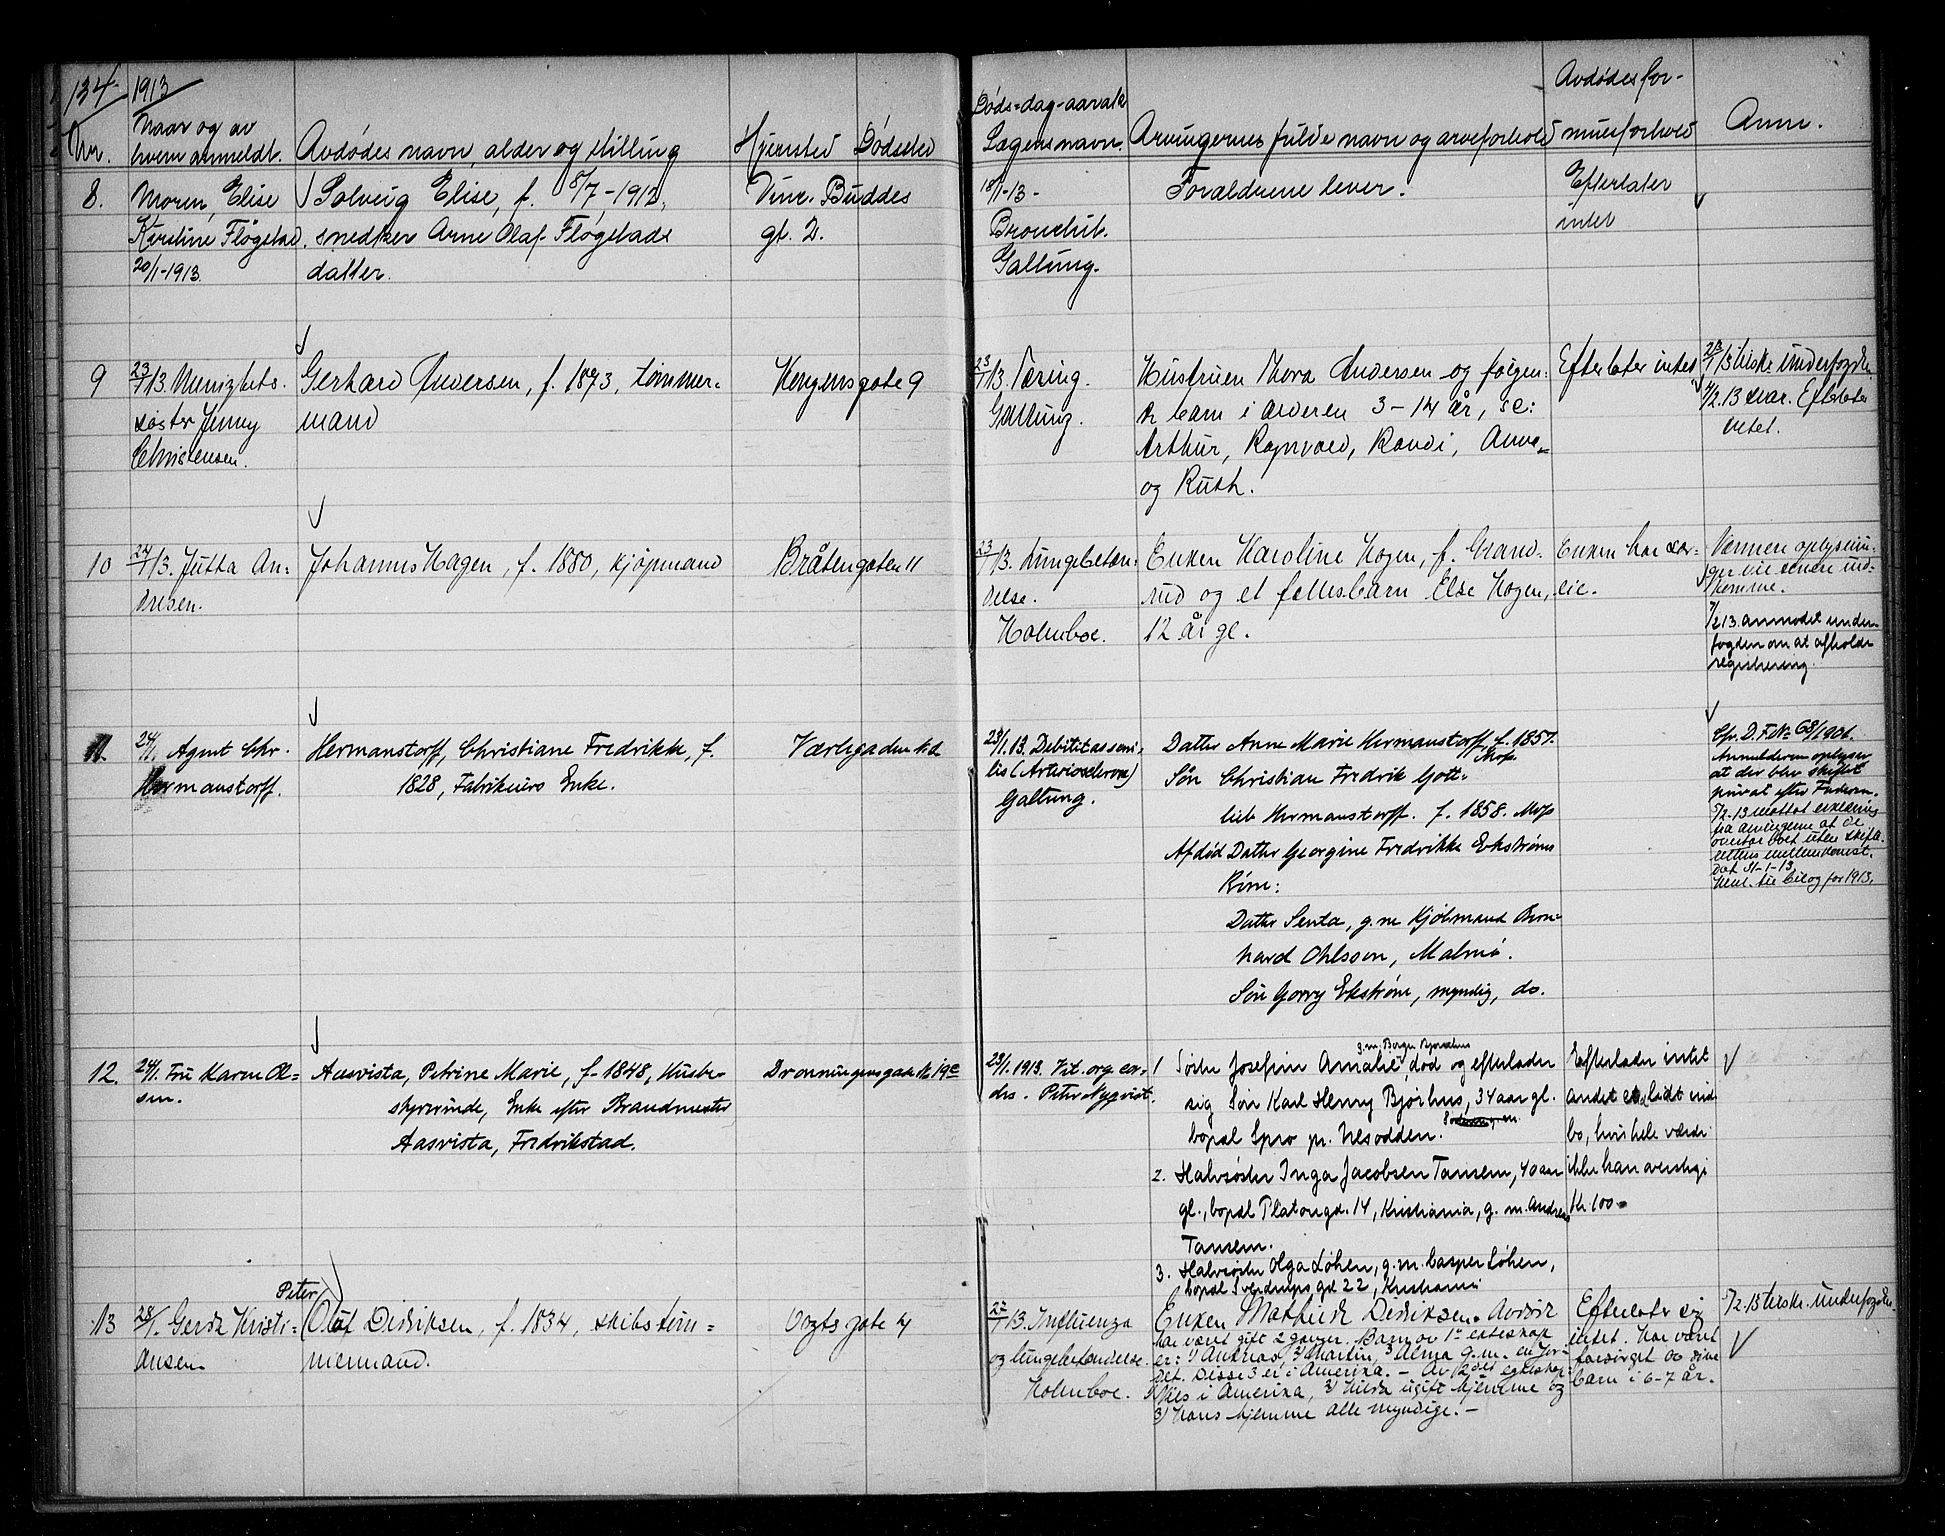 134 1913
Nr. Naar og av hvem anmeldt. Avdødes navn, alder og stilling Hjemsted Dødssted Døds-dag-aarsak Lægens navn. Arvingernes fulde navn og arveforhold Avdødes formuesforhold Anm.
8. Moren, Elise
Kirstine Fløgstad
20/1-1913.
Solveig Elise, f. 8/7-1912,
snedker Arne Olaf Fløgstads
datter.
Vinc. Buddes
gt. 2.
18/1-13-
Bronchit.
Galtung.
Forældrene lever.
Efterlater
intet
9 23/1 13. Menighets-
søster Jenny
Christensen.
Gerhard Andersen, f. 1873, tømmer-
mand
Kongensgate 9
23/1 13. Tæring.
Galtung.
Hustruen Thora Andersen og følgen-
de barn i alderen 3-14 år, se:
Arthur, Ragnvald, Randi, Anna
og Ruth.
Efterlater intet
23/1 13 tilskr. underfogden.
4/2.13 svar. Efterlater
intet.
10 24/1 13. Jutta An-
dresen.
Johannes Hagen, f. 1880, kjøpmand
Bråtengaten 11
23/1 13. Lungebetæn-
delse.
Holmboe.
Enken Karoline Hagen, f. Grand-
rud og et fellesbarn Else Hagen,
12 år gl.
Enken har sær-
eie.
Nærmere oplysnin-
ger vil senere ind-
komme.
7/2 13. anmodet under-
fogden om at afholde
registrering.
11. 24/1. Agent Chr.
Hermanstorff.
Hermanstorff, Christiane Fredrikke, f.
1828, Fabrikeiers Enke.
Værlegaden
23/1. 13. Debilitas seni-
lis (Arteriosclerose)
Galtung.
Datter Anne Marie Hermanstorff, f. 1857.
Moss
Søn Christian Fredrik Gott-
lieb Hermanstorff. f. 1858. Moss
Afdød Datter Georgine Fredrikke Ekstrøms
Børn:
Datter Senta, g. m Kjøbmand Bern-
hard Ohlsson, Malmø.
Søn Gorry Ekstrøm, myndig, do.
Cfr. D.F. No 68/1901.
Anmelderen oplyser
at der blev skiftet
privat efter Faderen.
5/2-13 mottat erklæring
fra arvingerne at de
overtar boet uten skifte-
rettens mellemkomst.
Dat 31-1-13.
Henl. til bilag for 1913.
12. 24/1. Fru Karen Ol-
sen.
Aasvista, Petrine Marie, f. 1848, Husbe-
styrerinde, Enke efter Brandmester
Aasvista, Fredrikstad.
Dronningensgade No 19c
23/1. 1913. Vit. org. cor-
dis. Peter Nyquist.
g. m. Birger Bjørhus
1 Søster Josefine Amalie, død og efterlader
sig Søn Karl Henry Bjørhus, 34 aar gl.
bopæl Spro pr. Nesodden.
2. Halvsøster Inga Jacobsen Tansem, 40 aar
gl., bopæl Platousgd. 14, Kristiania, g. m. Andreas
Tansem.
3. Halvsøster Olga Løken, g. m. Casper Løken,
bopæl Sverdrups gd 22, Kristiania
Efterlader intet
andet end lidt ind-
bo, hvis hele værdi
ikke kan overstige
Kr. 100.-
13 28/1. Gerda Kristi-
ansen.
Peter
Olaf Didriksen, f. 1834, skibstøm-
mermand.
Vogtsgate 4
27/1 13. Influenza
og lungebetændelse.
Holmboe.
Enken Mathilde Didriksen. Avdøde
har været gift 2 ganger. Barn av 1ste egteskap
er: 1) Andreas, 2) Martin, 3) Alma g. m. en
Disse 3 er i Amerika. - Av 2det egteskap:
1) Nils i Amerika, 2) Hilda ugift hjemme og
3) Hans hjemme alle myndige. -
Efterlater sig
intet. Har været
forsørget av sine
barn i 6-7 år.
5/2. 13 tilskr. underfogden.